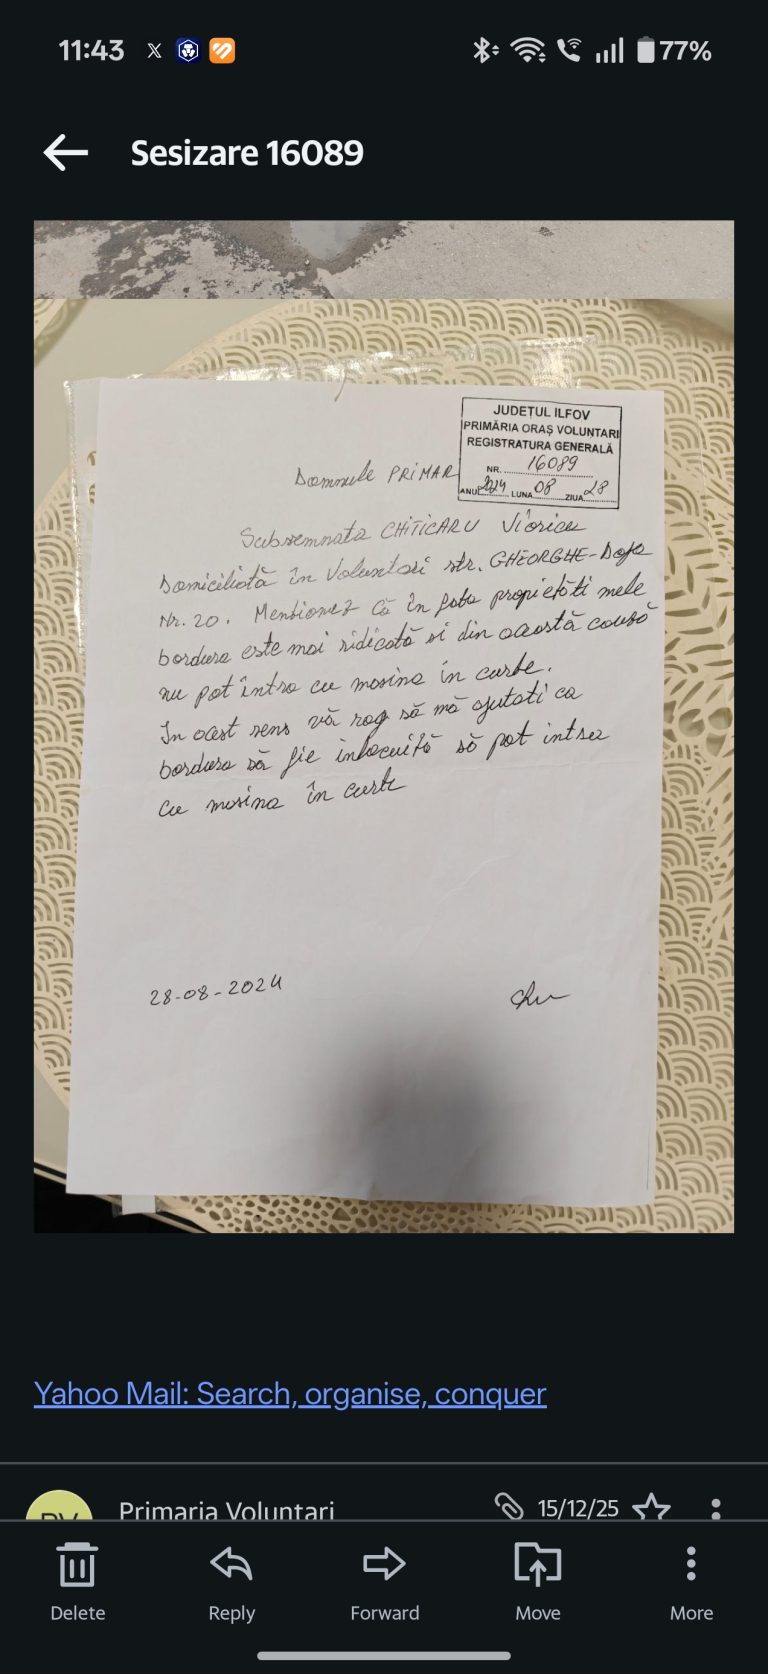 11:43
77%
Sesizare 16089
JUDEȚUL ILFOV
PRIMĂRIA ORAȘ VOLUNTARI
REGISTRATURA GENERALĂ
NR. 16089
ANUL 2024 LUNA 08 ZIUA 28
Domnule PRIMAR
Subsemnata CHITICARU Viorica
Domiciliată în Voluntari str. GHEORGHE-Doja
Nr. 20. Mentionez Că în fata propietăti mele
bordura este mai ridicată si din acastă cousă
nu pot intra cu masina in curte.
In acest sens vă rog să mă ajutati ca
bordura să fie inlocuită să pot intra
cu masina in curte
28-08-2024
Yahoo Mail: Search, organise, conquer
PV
Primaria Voluntari
15/12/25
Delete
Reply
Forward
Move
More